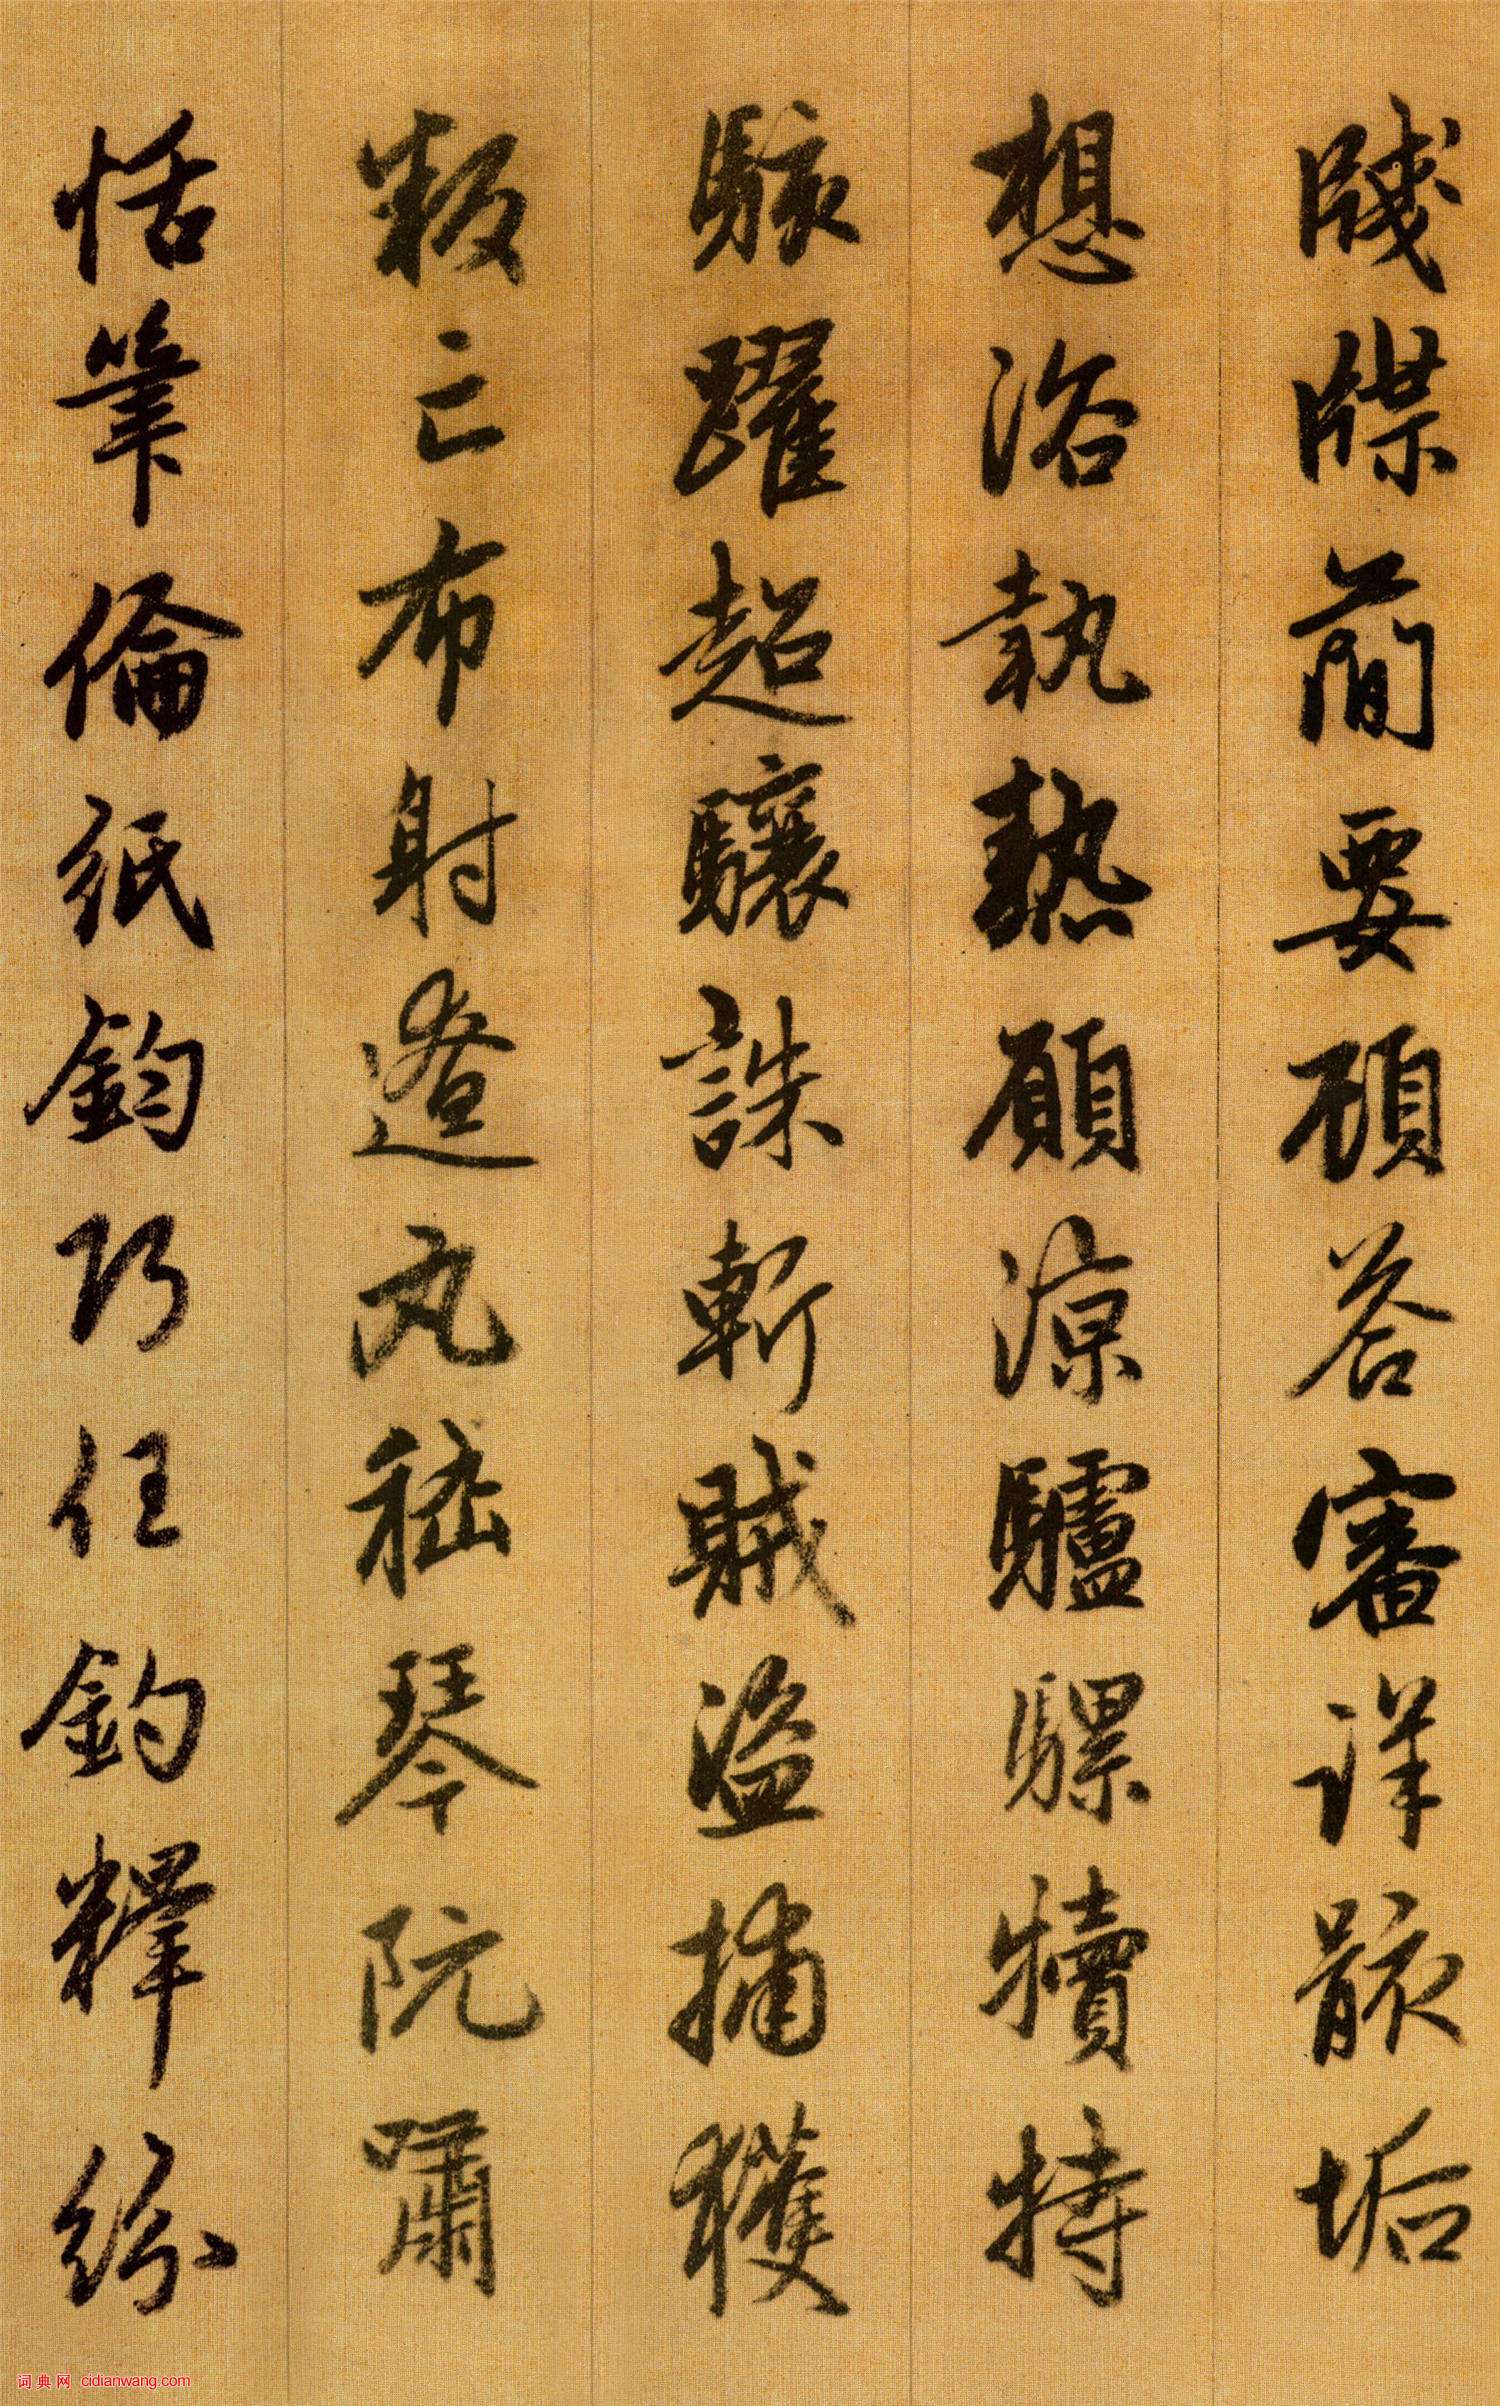 牋牒簡要顧答審詳骸垢
想浴執熱願涼驢騾犢特
駭躍超驤誅斬賊盜捕獲
叛亡布射遼丸嵇琴阮嘯
恬筆倫紙鈞巧任釣釋紛
词典网 cidianwang.com